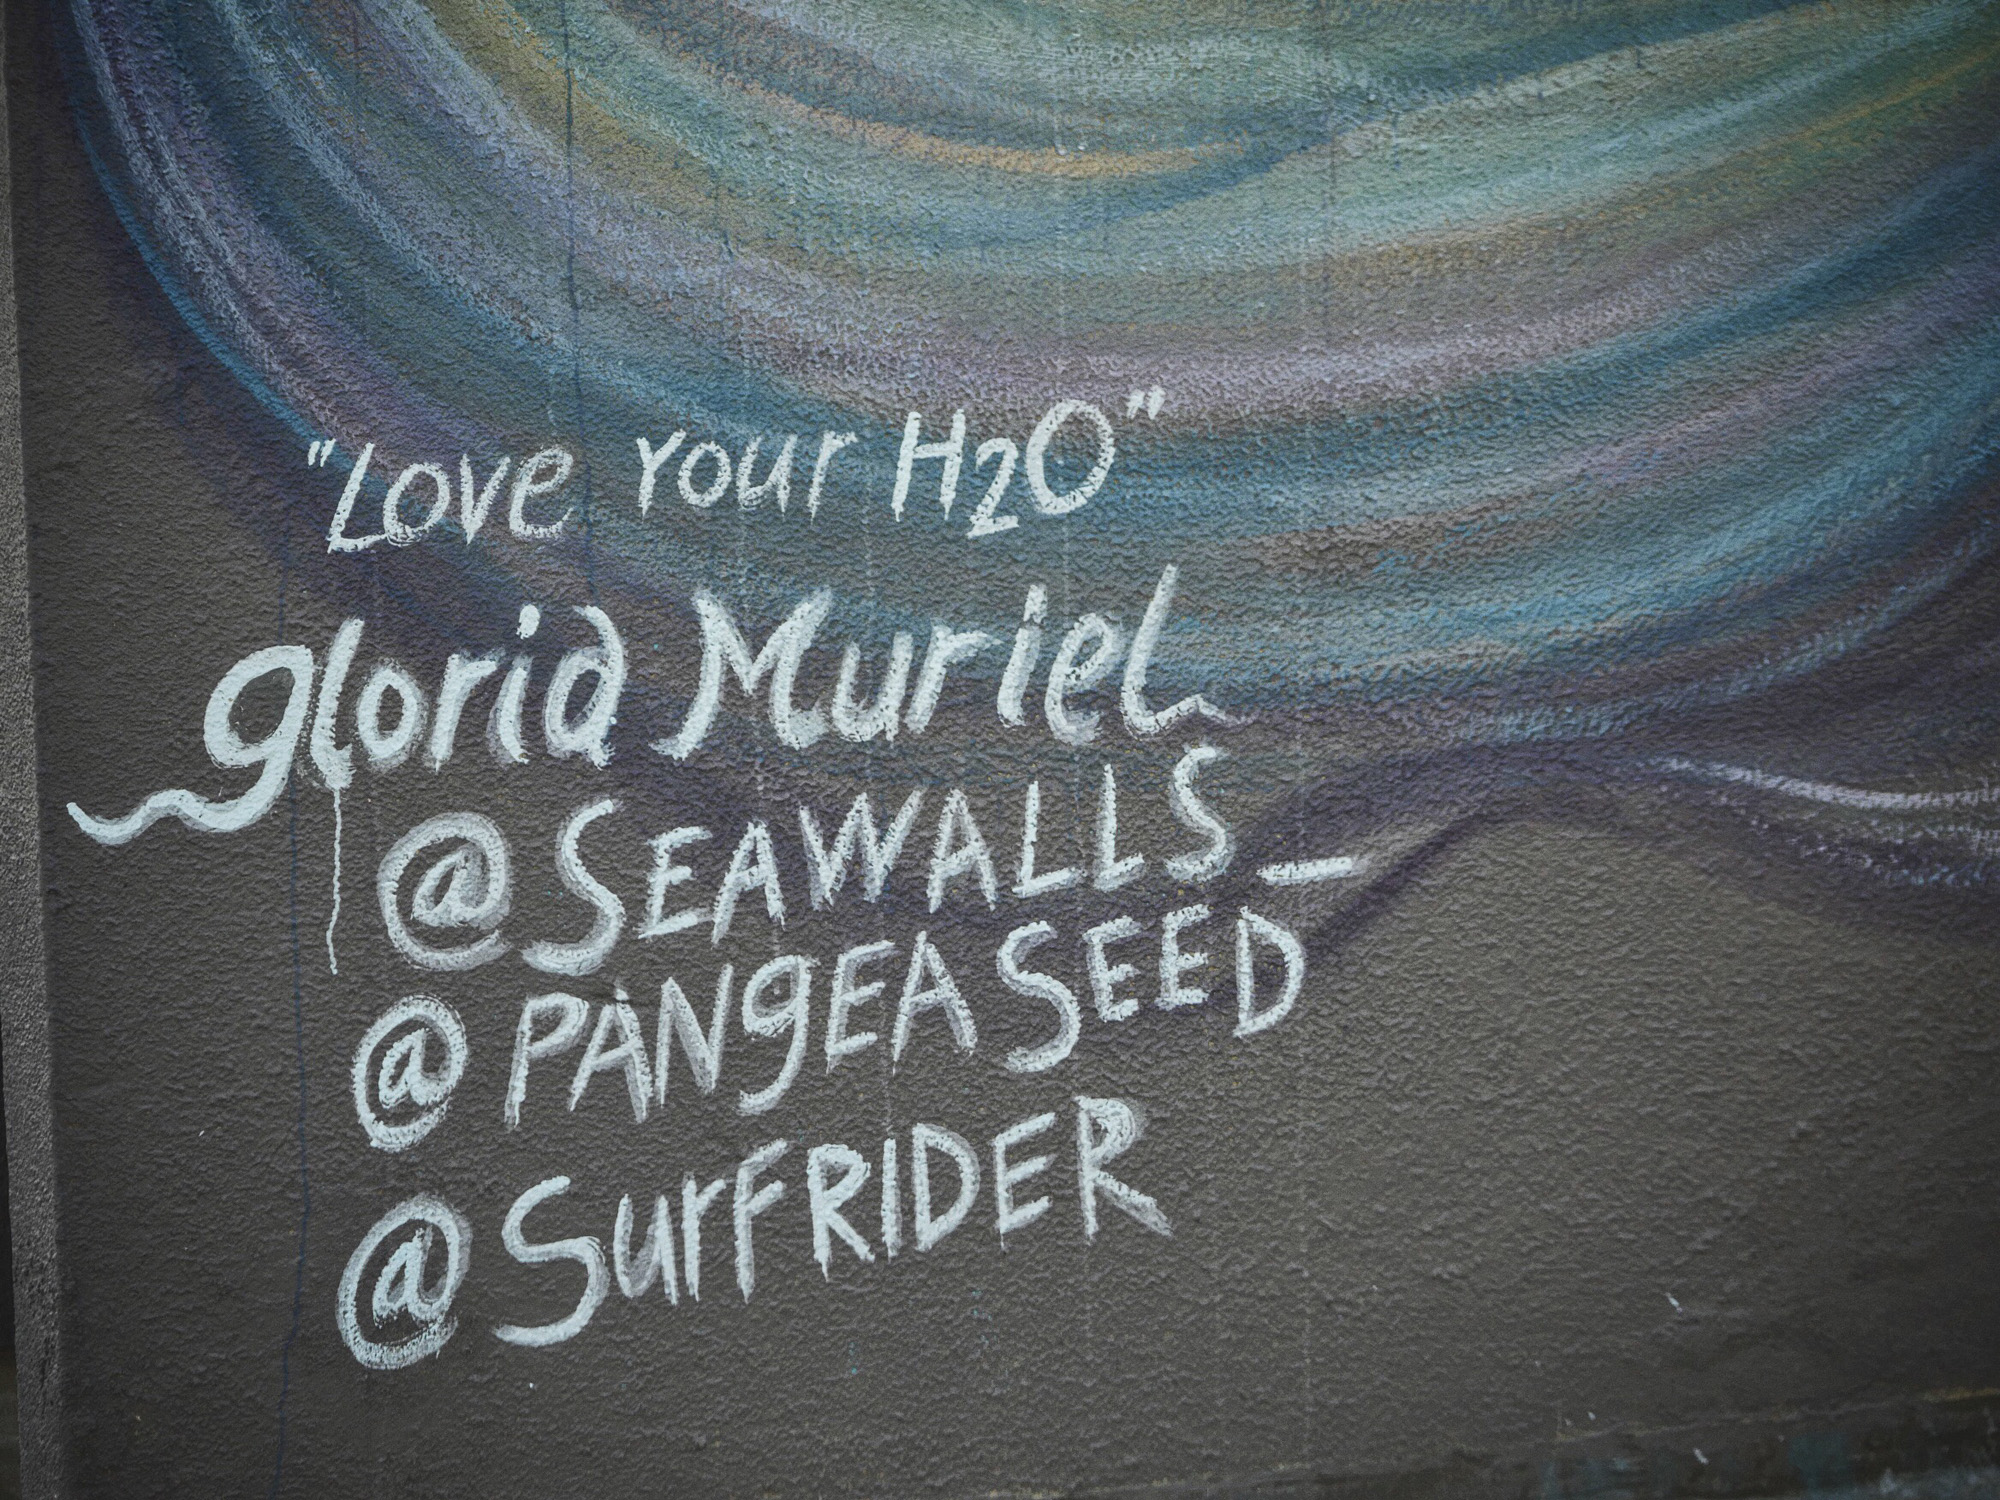 "Love Your H2O"
gloria Muriel
@SEAWALLS_
@PANgEASEED
@SurFRIDER